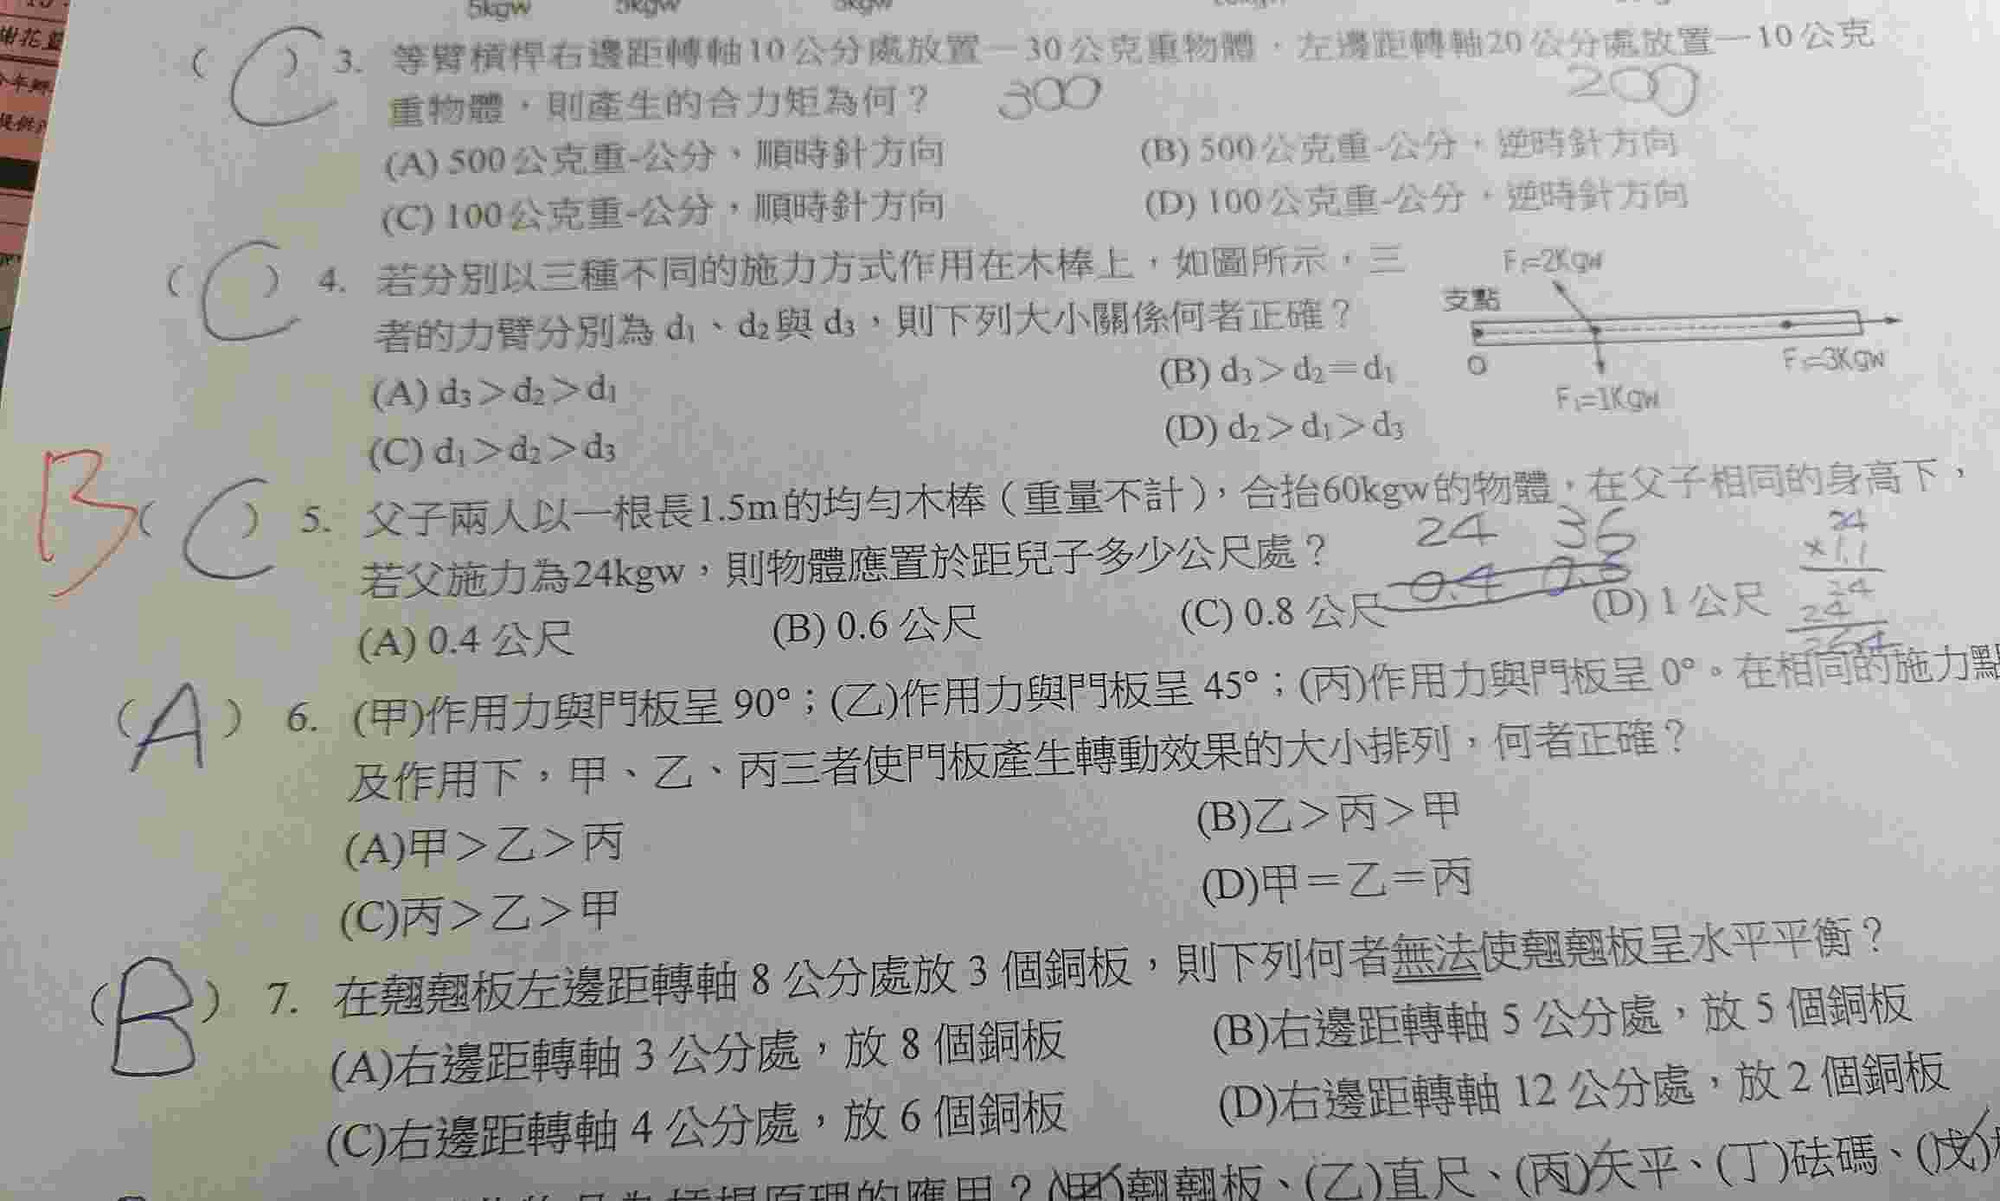 5kgw 5kgw
(C) 3. 等臂槓桿右邊距轉軸10公分處放置一30公克重物體，左邊距轉軸20公分處放置一10公克
重物體，則產生的合力矩為何？ 300 200
(A) 500公克重-公分，順時針方向 (B) 500公克重-公分，逆時針方向
(C) 100公克重-公分，順時針方向 (D) 100公克重-公分，逆時針方向
(C) 4. 若分別以三種不同的施力方式作用在木棒上，如圖所示，三
者的力臂分別為 d₁、d₂與 d₃，則下列大小關係何者正確？
(A) d₃＞d₂＞d₁ (B) d₃＞d₂＝d₁
(C) d₁＞d₂＞d₃ (D) d₂＞d₁＞d₃
F=2Kgw
支點
O
F=3Kgw
F₁=1Kgw
B (C) 5. 父子兩人以一根長1.5m的均勻木棒（重量不計），合抬60kgw的物體，在父子相同的身高下，
24 36
若父施力為24kgw，則物體應置於距兒子多少公尺處？
0.4
24
×1.1
24
24
264
(A) 0.4 公尺 (B) 0.6 公尺 (C) 0.8 公尺 (D) 1 公尺
(A) 6. (甲)作用力與門板呈 90°；(乙)作用力與門板呈 45°；(丙)作用力與門板呈 0°。在相同的施力點
及作用下，甲、乙、丙三者使門板產生轉動效果的大小排列，何者正確？
(A)甲＞乙＞丙 (B)乙＞丙＞甲
(C)丙＞乙＞甲 (D)甲＝乙＝丙
(B) 7. 在翹翹板左邊距轉軸 8 公分處放 3 個銅板，則下列何者無法使翹翹板呈水平平衡？
(A)右邊距轉軸 3 公分處，放 8 個銅板 (B)右邊距轉軸 5 公分處，放 5 個銅板
(C)右邊距轉軸 4 公分處，放 6 個銅板 (D)右邊距轉軸 12 公分處，放 2 個銅板
槓桿原理的應用？(甲)翹翹板、(乙)直尺、(丙)天平、(丁)砝碼、(戊)